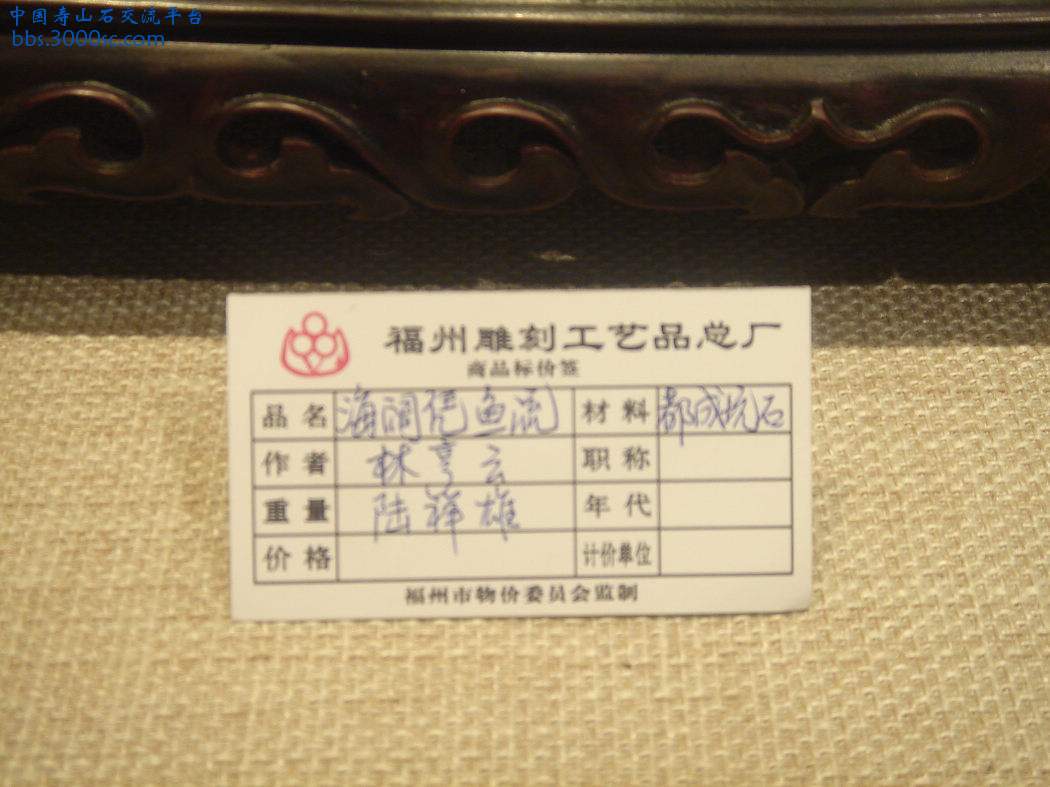 中国寿山石交流平台
bbs.3000sc.com
福州雕刻工艺品总厂
商品标价签
品名 海阔凭鱼流 材料 都成坑石
作者 林亨云 职称
重量 陆祥雄 年代
价格 计价单位
福州市物价委员会监制